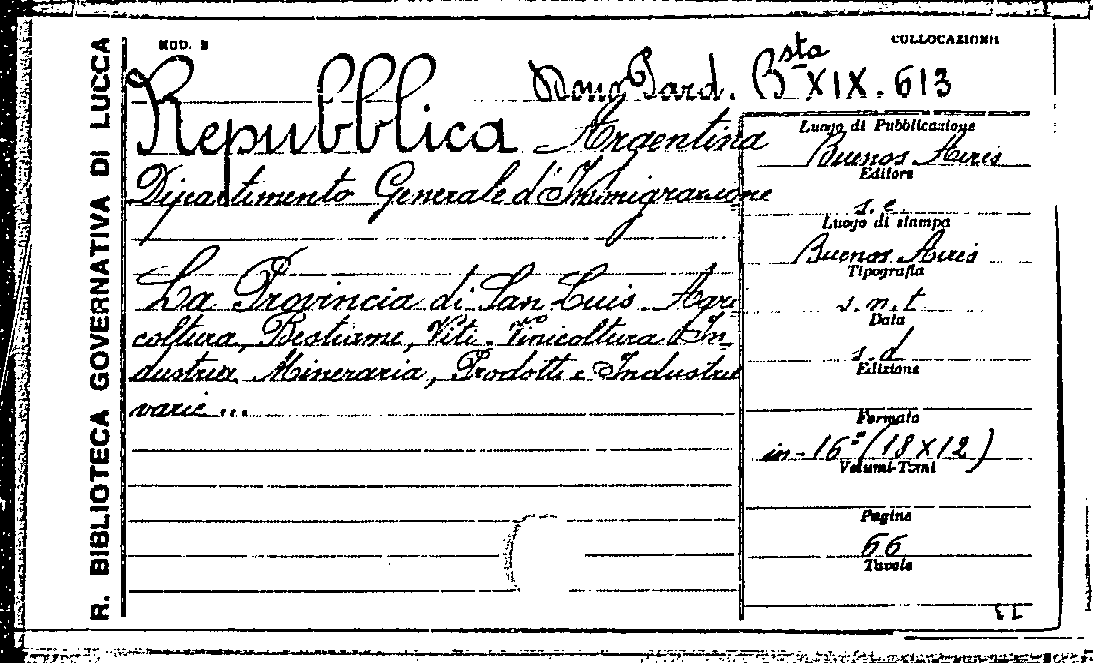 R. BIBLIOTECA GOVERNATIVA DI LUCCA
MOD. B
COLLOCAZIONE
Bsta XIX. 613
Repubblica Argentina
Dipartimento Generale d'Immigrazione
La Provincia di San Luis. Agri
coltura, Bestiame, Viti-Vinicoltura In
dustria Mineraria, Prodotti e Industrie
varie ...
Luogo di Pubblicazione
Buenos Aires
Editore
s. e.
Luogo di stampa
Buenos Aires
Tipografia
s. n. t
Data
s. d
Edizione
Formato
in-16° (18 X 12)
Volumi-Tomi
Pagine
66
Tavole